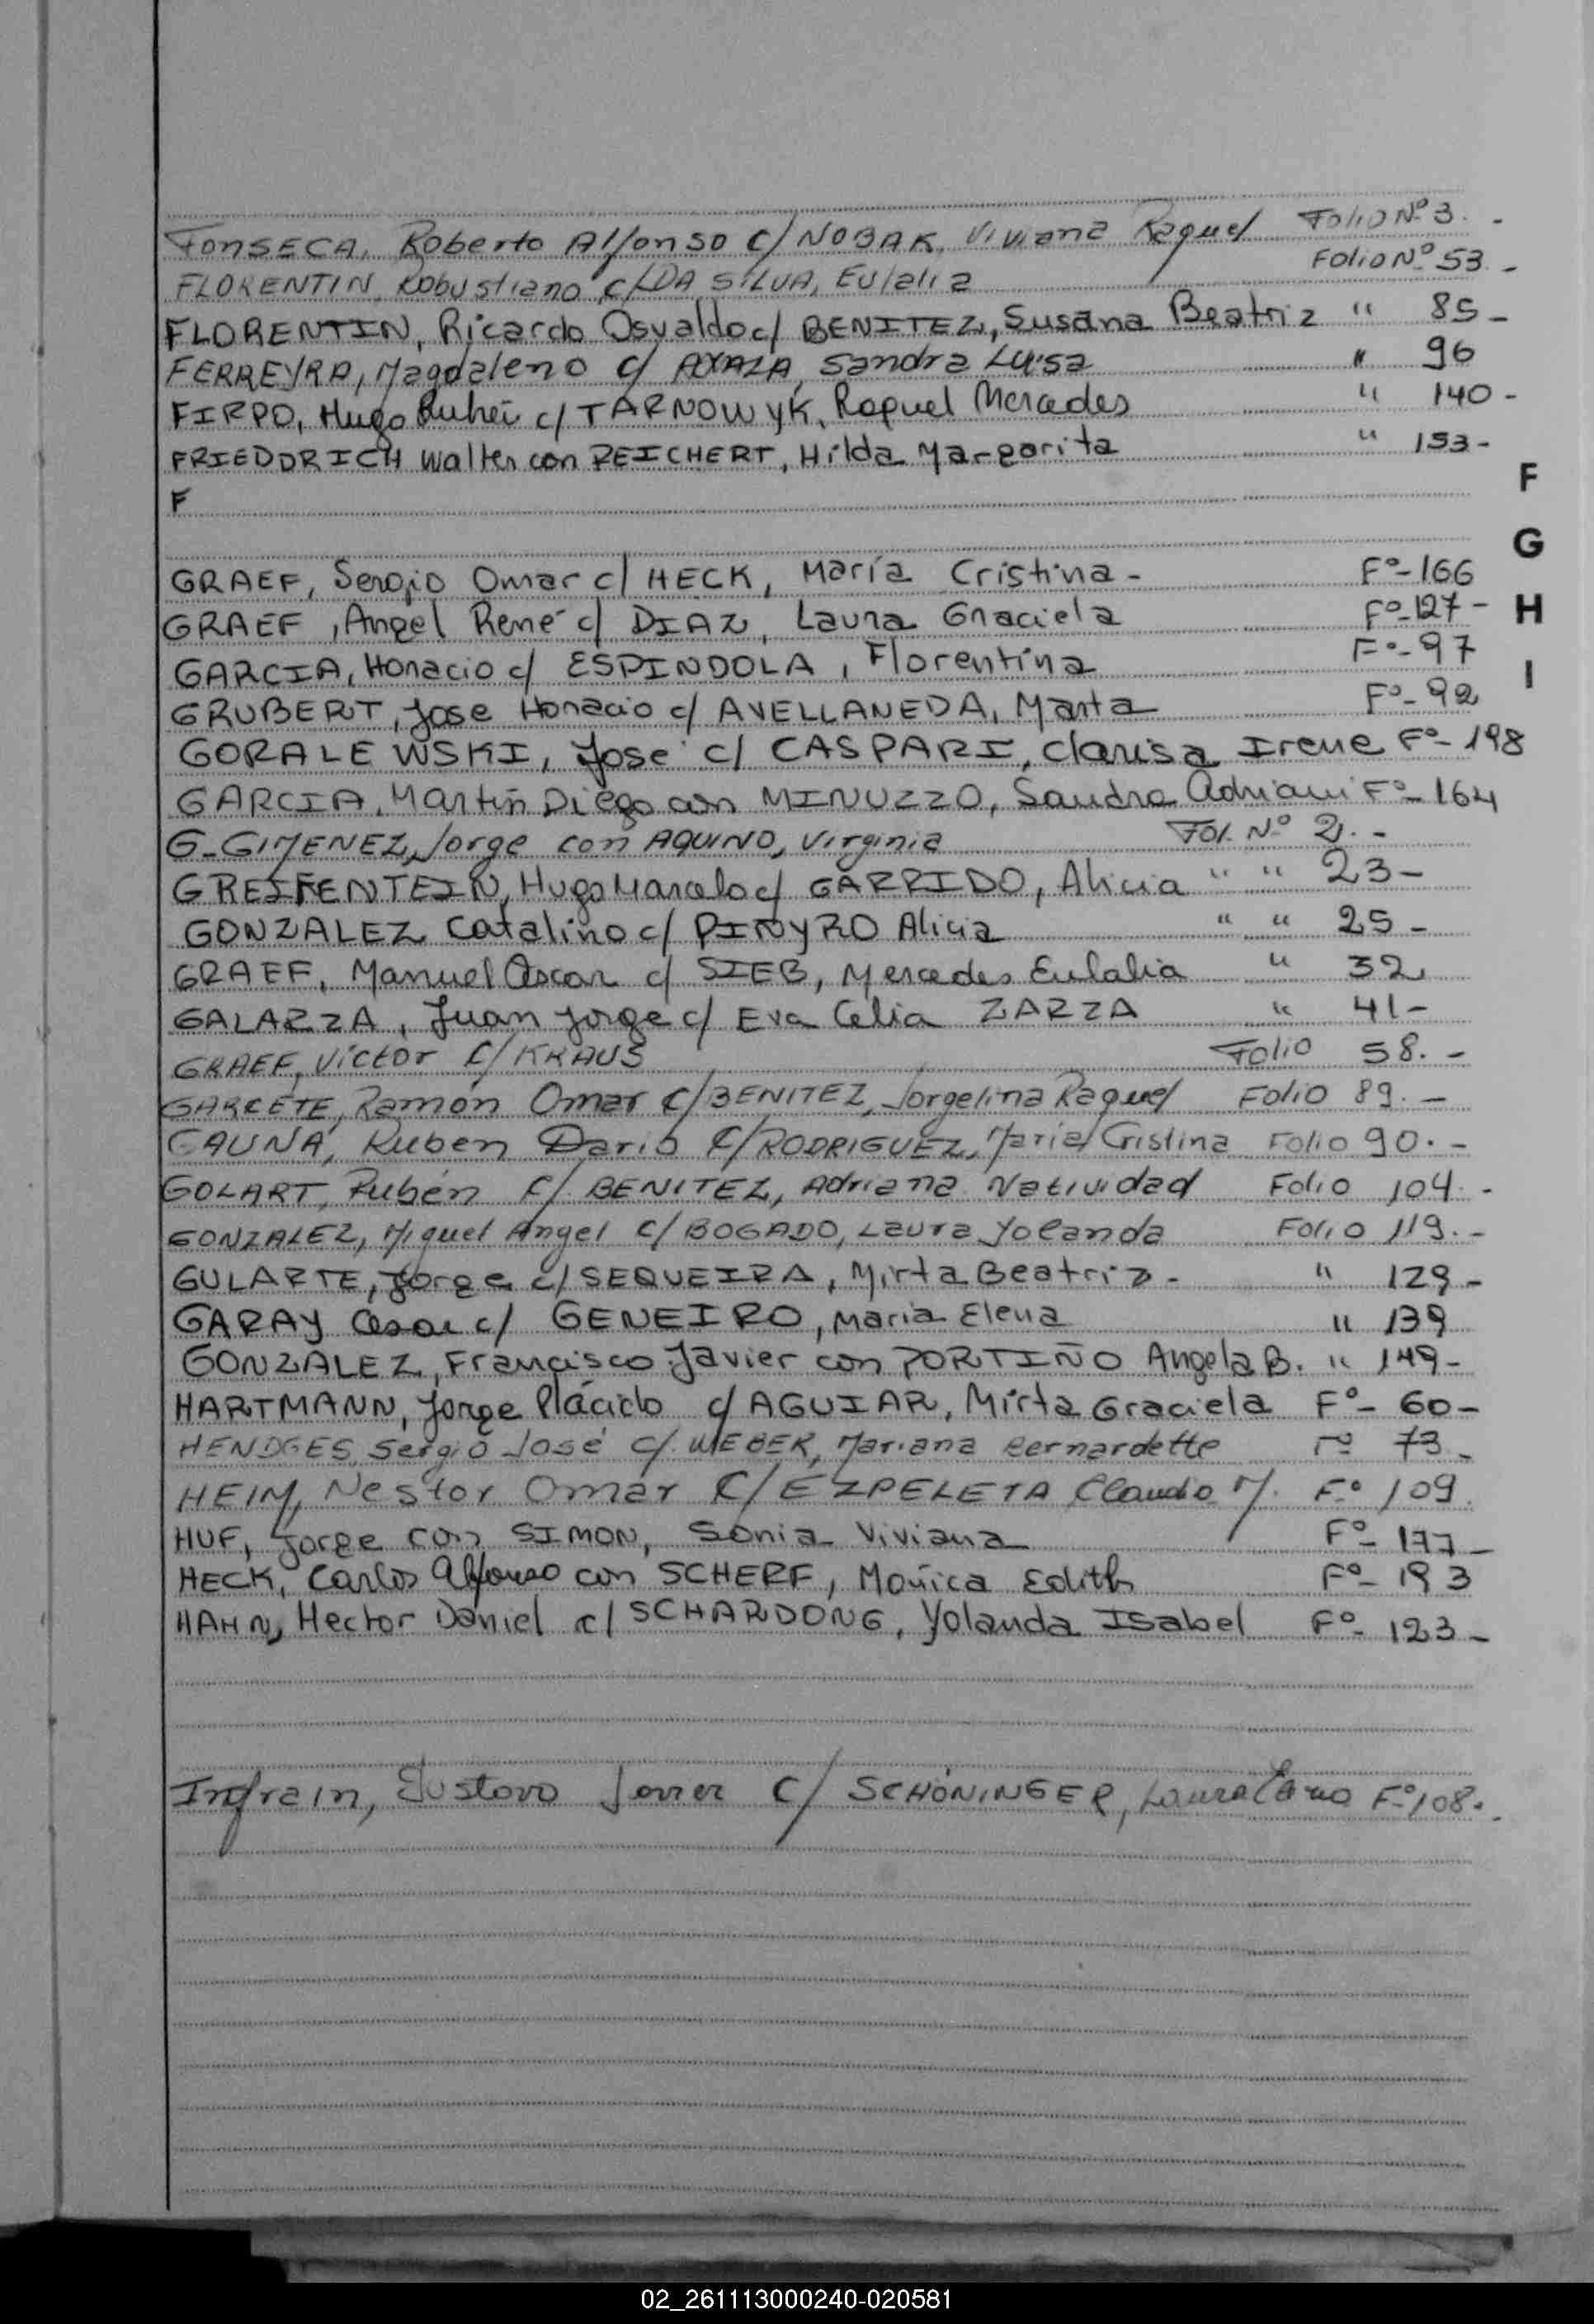 FONSECA, Roberto Alfonso c/ NOBAK, Viviana Raquel Folio Nº 3. -
FLORENTIN, Robustiano c/ DA SILVA, Eulalia Folio Nº 53 -
FLORENTIN, Ricardo Osvaldo c/ BENITEZ, Susana Beatriz " 85 -
FERREYRA, Magdaleno c/ AYALA, Sandra Luisa " 96
FIRPO, Hugo c/ TARNOWYK, Raquel Mercedes " 140 -
FRIEDDRICH Walter con REICHERT, Hilda Margarita " 153 -
F
F
GRAEF, Sergio Omar c/ HECK, María Cristina - Fº- 166
G
GRAEF, Angel René c/ DIAZ, Laura Graciela Fº- 127 -
H
GARCIA, Horacio c/ ESPINDOLA, Florentina Fº- 97
I
GRUBERT, Jose Horacio c/ AVELLANEDA, Marta Fº- 92
GORALEWSKI, Jose c/ CASPARI, Clarisa Irene Fº- 198
GARCIA, Martín Diego con MINUZZO, Sandra Fº- 164
G-GIMENEZ, Jorge con AQUINO, Virginia Fol. Nº 2. -
GREIFENTEIN, Hugo Marcelo c/ GARRIDO, Alicia " " 23 -
GONZALEZ Catalino c/ Alicia " " 25 -
GRAEF, Manuel Oscar c/ SIEB, Mercedes Eulalia " 32
GALARZA, Juan Jorge c/ Eva Celia ZARZA " 41 -
GRAEF, Victor c/ KRAUS Folio 58. -
GARCETE, Ramón Omar c/ BENITEZ, Jorgelina Raquel Folio 89. -
GAUNA, Ruben Dario c/ RODRIGUEZ, María Cristina Folio 90. -
GOLART, Rubén c/ BENITEZ, Adriana Natividad Folio 104. -
GONZALEZ, Miguel Angel c/ BOGADO, Laura Yolanda Folio 119. -
GULARTE, Jorge c/ SEQUEIRA, Mirta Beatriz - " 129 -
GARAY Cesar c/ GENEIRO, Maria Elena " 139
GONZALEZ, Francisco Javier con PORTIÑO Angela B. " 149 -
HARTMANN, Jorge Plácido c/ AGUIAR, Mirta Graciela Fº- 60 -
HENDGES, Sergio José c/ WEBER, Mariana Bernardette Fº 73 -
HEIM, Nestor Omar c/ EZPELETA Claudio M. Fº 109.
HUF, Jorge con SIMON, Sonia Viviana Fº- 177 -
HECK, Carlos Alfonso con SCHERF, Mónica Edith Fº- 193
HAHN, Hector Daniel c/ SCHARDONG, Yolanda Isabel Fº- 123 -
Infrain, Gustavo Javier c/ SCHÖNINGER, Laura Fº 108. -
02_261113000240-020581